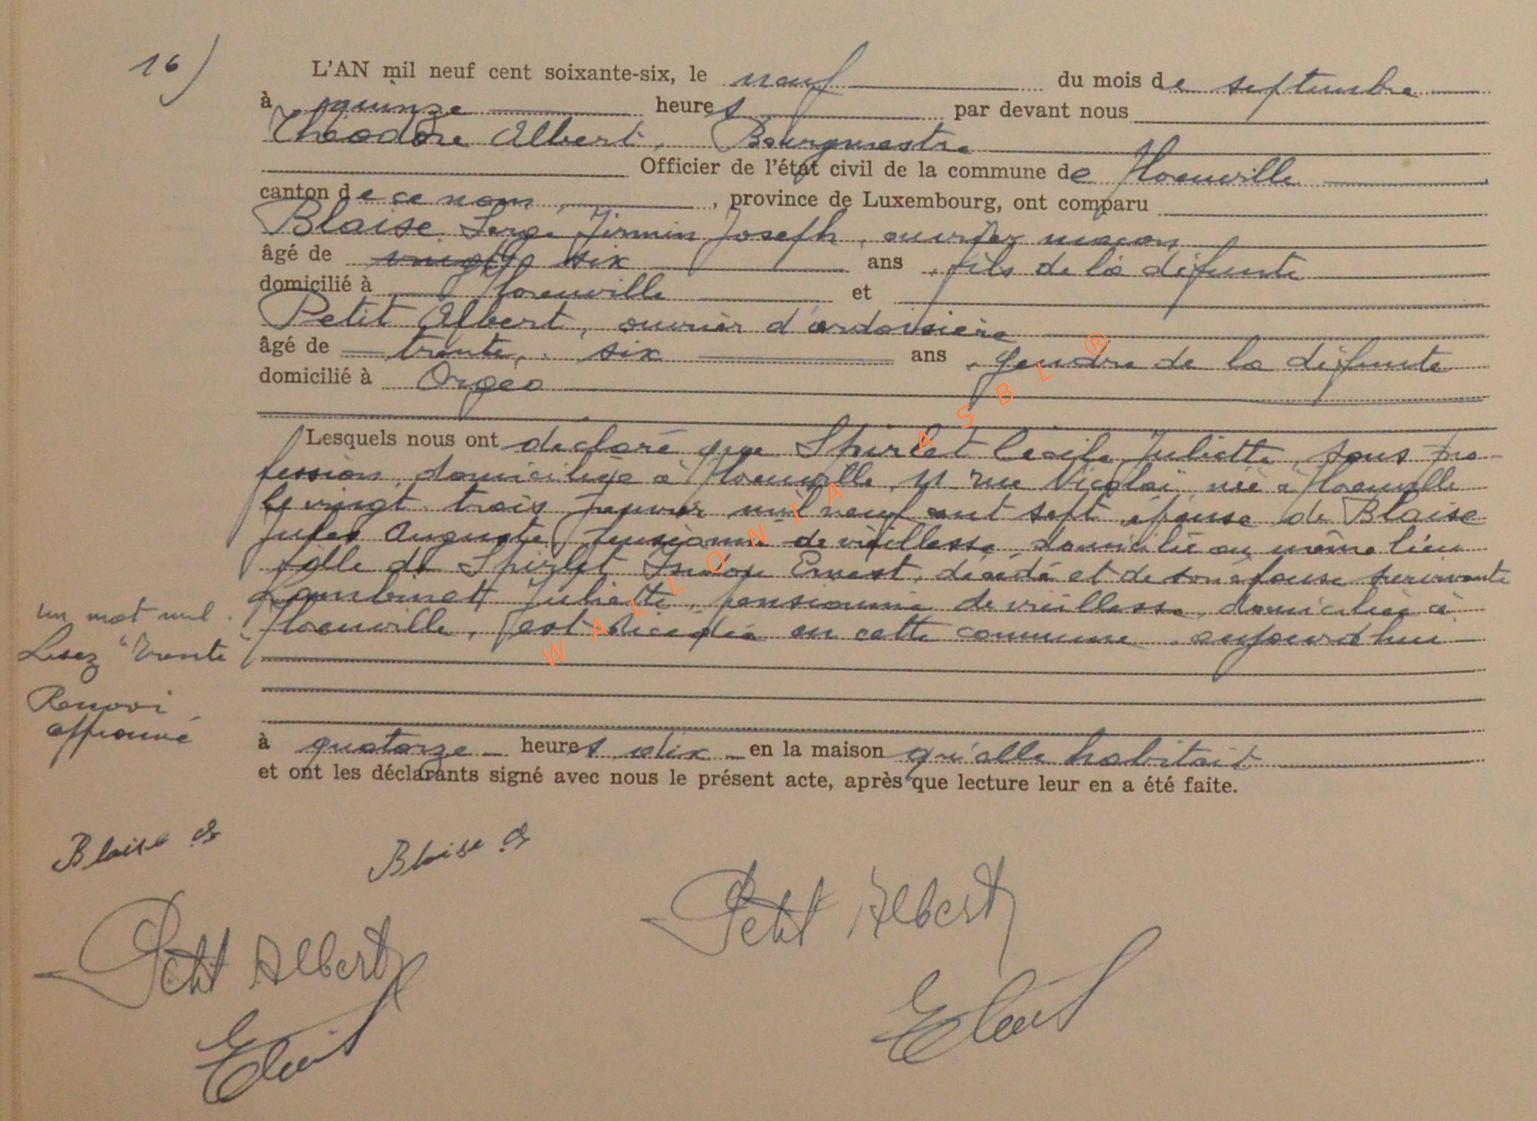 16)
L'AN mil neuf cent soixante-six, le neuf du mois de septembre
à quinze heures par devant nous
Théodore Albert, Bourgmestre
Officier de l'état civil de la commune de
canton de ce nom, province de Luxembourg, ont comparu
Blaise Serge Firmin Joseph, ouvrier maçon
âgé de six ans, fils de la défunte
domicilié à et
Petit Albert, ouvrier d'ardoisière
âgé de trente, six ans, gendre de la défunte
domicilié à Orgeo
Lesquels nous ont déclaré que Spirlet Cécile Juliette, sans pro-
fession, domiciliée à 11 rue Nicolaï, née à
le vingt trois janvier mil neuf cent sept épouse de Blaise
Jules Auguste, pensionné de vieillesse, domicilié au même lieu
fille de Spirlet Ernest, décédé et de son épouse survivante
Juliette, pensionnée de vieillesse, domiciliée à
est décédée en cette commune aujourd'hui
un mot nul.
Lisez "Trente"
Renvoi
approuvé
à quatorze heures dix en la maison qu'elle habitait
et ont les déclarants signé avec nous le présent acte, après que lecture leur en a été faite.
Blaise S Blaise S
Petit Albert Petit Albert
WALLONIA ASBL ®